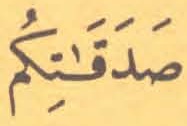 صَدَقَٰتِكُم